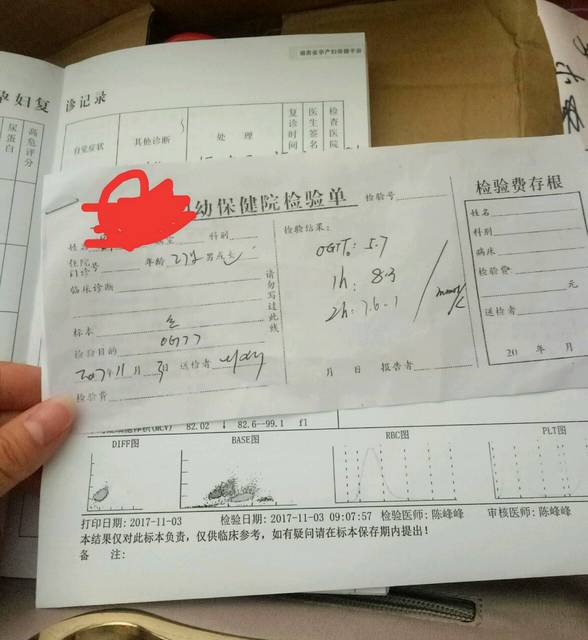 湖南省孕产妇保健手册
孕妇复 诊记录
尿蛋白
高危评分
自觉症状
其他诊断
处 理
复诊时间
医生签名
检查医院
幼保健院检验单
检验号
姓名 科别
住院
门诊号 年龄 27岁
临床诊断
标本
检验目的 OGTT
2017年11月3日 送检者
检验费
请勿写过此线
检验结果:
OGTT0: 5.7
1h: 8.3
2h: 7.6.1
mmol/L
月 日 报告者
检验费存根
姓名
科别
病床
检验费
元
送检者
20 年 月
82.02 ↓ 82.6--99.1 fl
DIFF图
BASE图
RBC图
PLT图
打印日期: 2017-11-03 检验日期: 2017-11-03 09:07:57 检验医师: 陈峰峰 审核医师: 陈峰峰
本结果仅对此标本负责,仅供临床参考,如有疑问请在标本保存期内提出!
备 注: